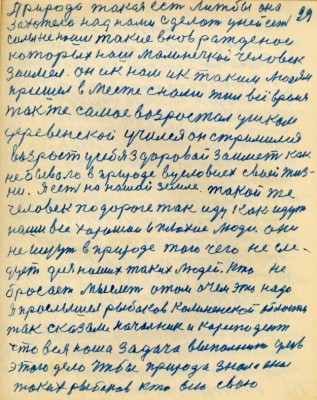 Природа такая есть Литбы она 29
Захотела над нами сделать умеет
сильне наши такие внов рождёной
которых наш маминькой человек
Заимел. он ик нам ик таким Людям
пришел вместе снами жил всё время
так же самое возростал умком
деревенской училса он стримился
возрост усебя здоровай Заимет как
небывало в природе вусловиех своей жиз-
ни. Я есть на нашей земле. такой же
человек подороге так иду как идут
наши все хорошаи и плохие люди. они
неищут в природе того чего не сле-
дует для нашых таких Людей. Кто не
бросает мыслет отом очем это надо
Я прослышел рыбаков Калиненской область
так сказали началник и коресподент
что вся наша задача выполнить
этого дело чтобы природа знала она
таких рыбаков кто всю свою